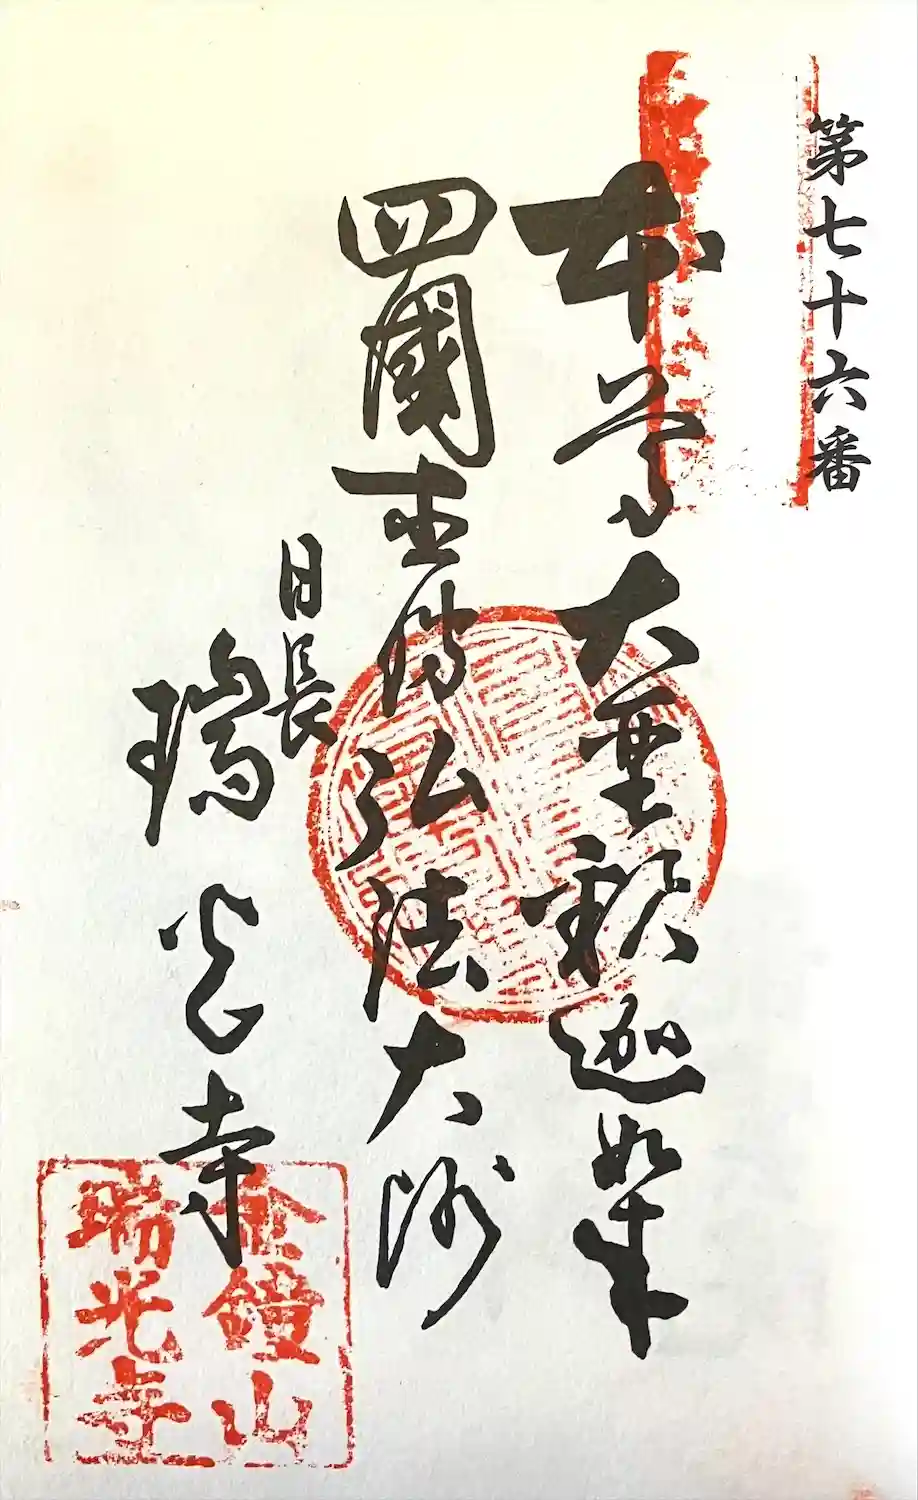 第七十六番
本尊大聖釈迦如来
四國直傳弘法大师
日長
瑞光寺
金鐘山
瑞光寺